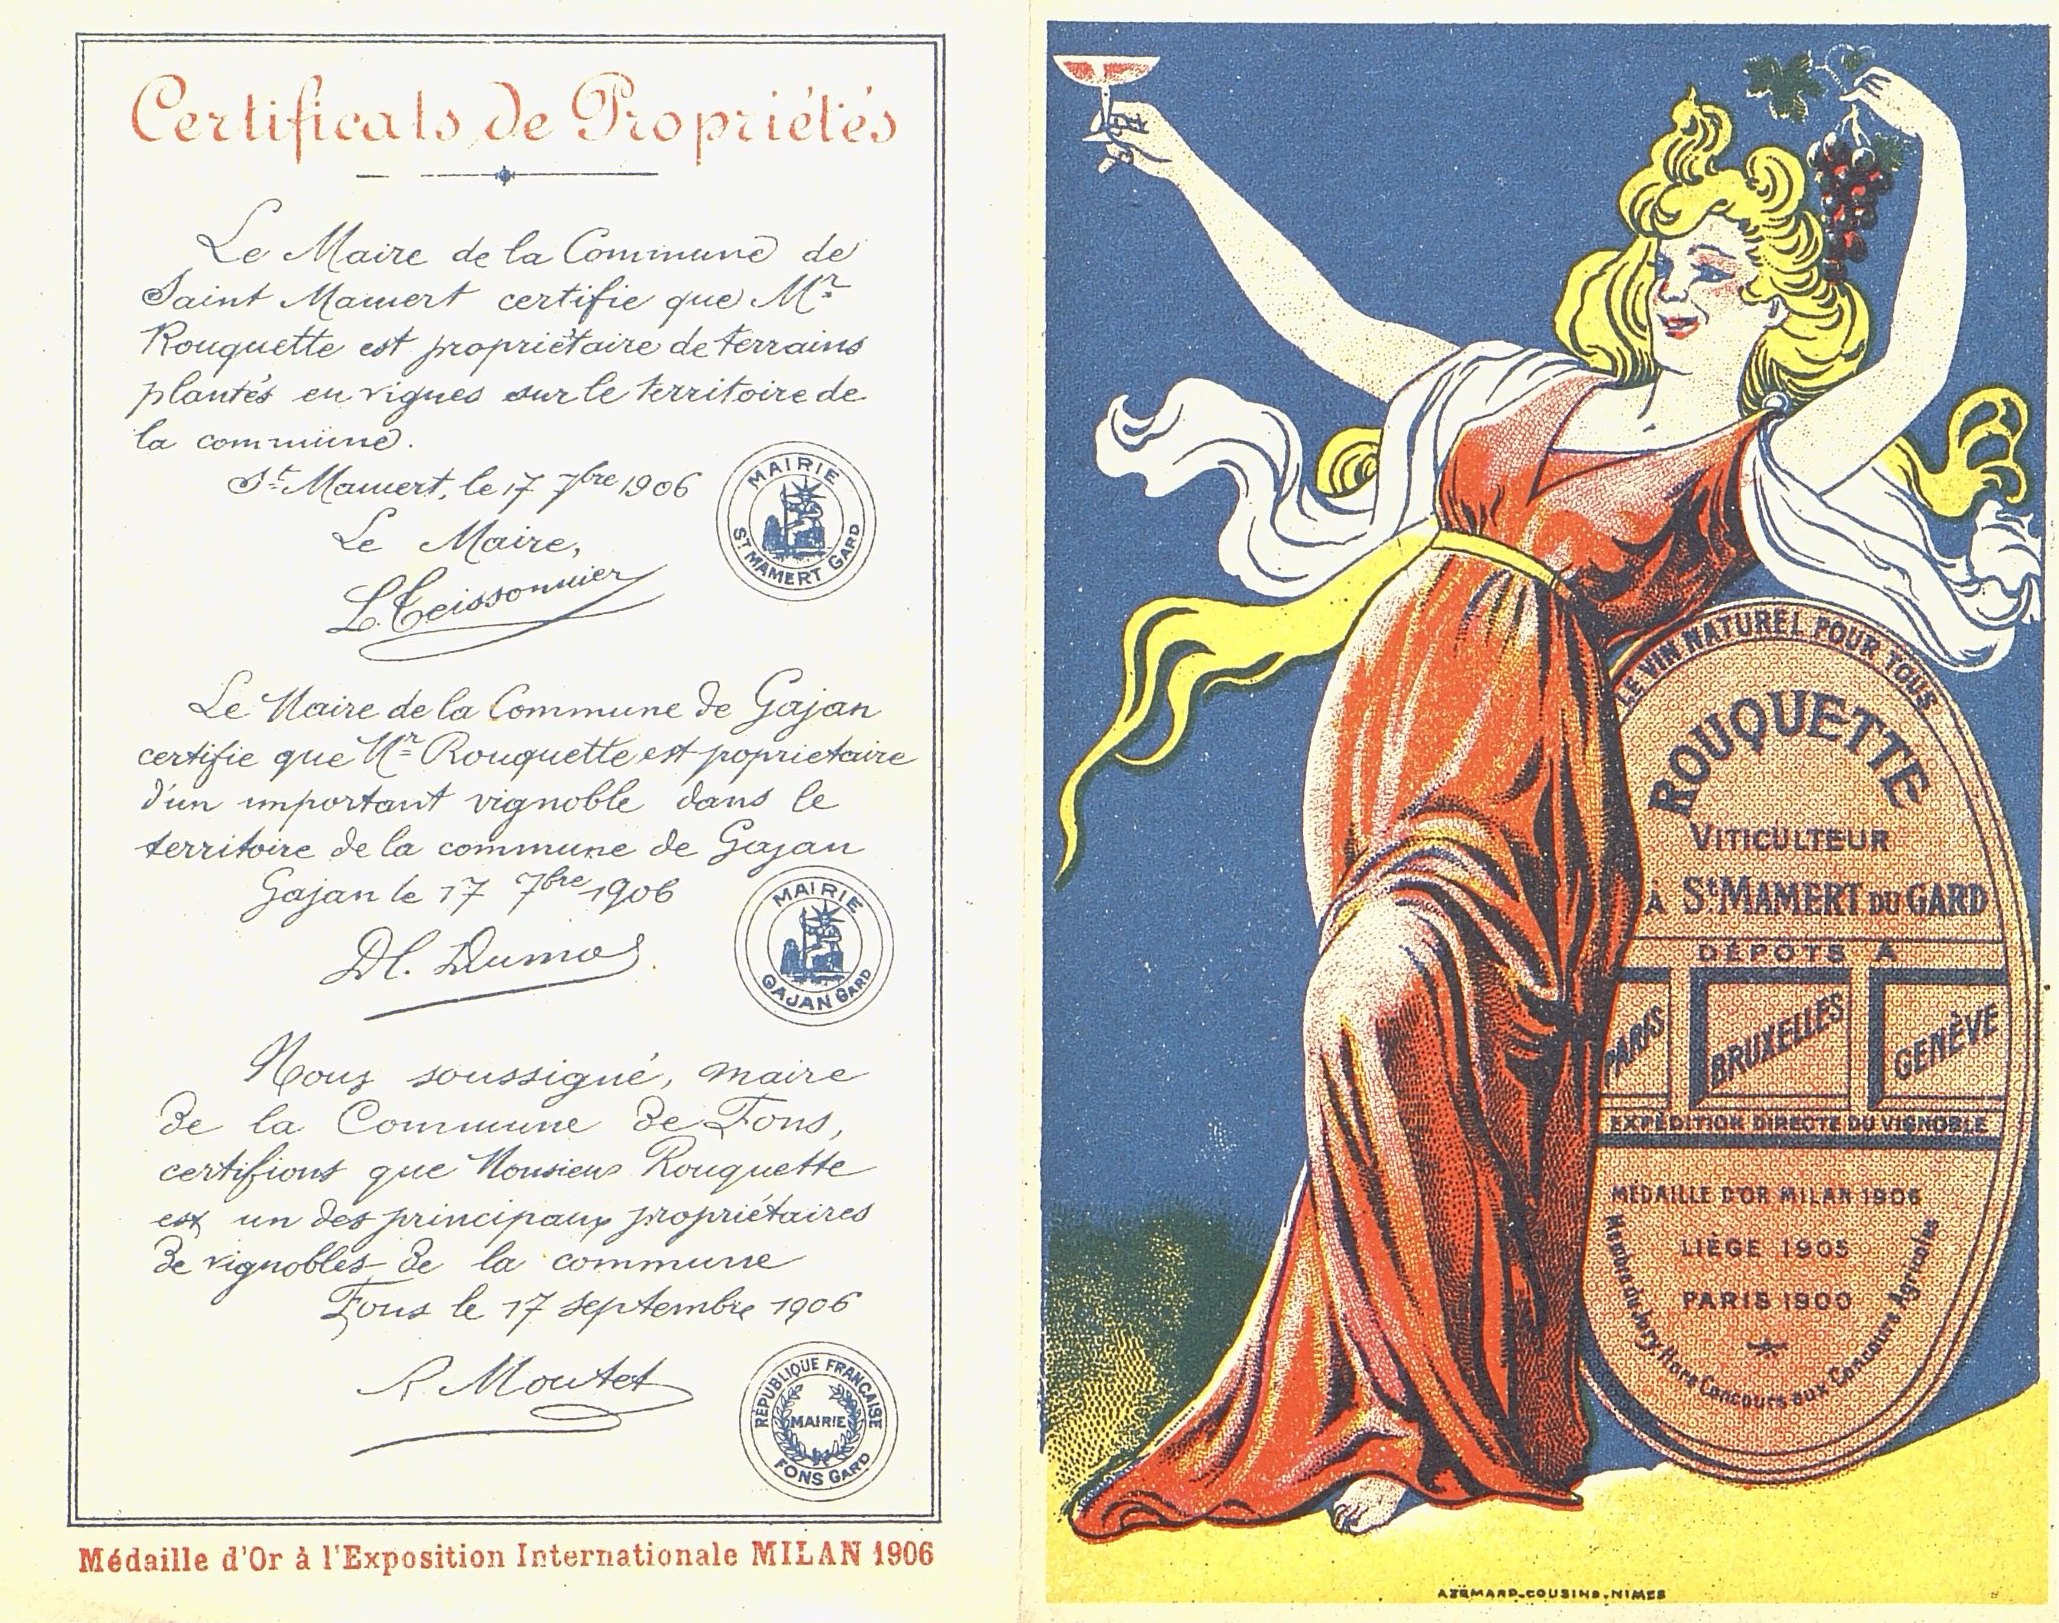 Certificats de Propriétés
Le Maire de la Commune de
Saint Mamert certifie que Mr
Rouquette est propriétaire de terrains
plantés en vignes sur le territoire de
la commune.
St Mamert, le 17 7bre 1906
Le Maire,
L. Teissonnier
MAIRIE
ST MAMERT GARD
Le Maire de la Commune de Gajan
certifie que Mr Rouquette est proprietaire
d'un important vignoble dans le
territoire de la commune de Gajan
Gajan le 17 7bre 1906
Dl. Dumas
MAIRIE
GAJAN GARD
Nous soussigné, maire
de la Commune de Fons,
certifions que Monsieur Rouquette
est un des principaux propriétaires
de vignobles de la commune
Fons le 17 septembre 1906
R. Moutet
RÉPUBLIQUE FRANÇAISE
MAIRIE
FONS GARD
Médaille d'Or à l'Exposition Internationale MILAN 1906
LE VIN NATUREL POUR TOUS
ROUQUETTE
VITICULTEUR
À St MAMERT DU GARD
DÉPOTS A
PARIS BRUXELLES GENÈVE
EXPÉDITION DIRECTE DU VIGNOBLE
MÉDAILLE D'OR MILAN 1906
LIÈGE 1905
PARIS 1900
Membre du Jury Hors Concours aux Concours Agricoles
AZÉMARD-COUSINS-NIMES